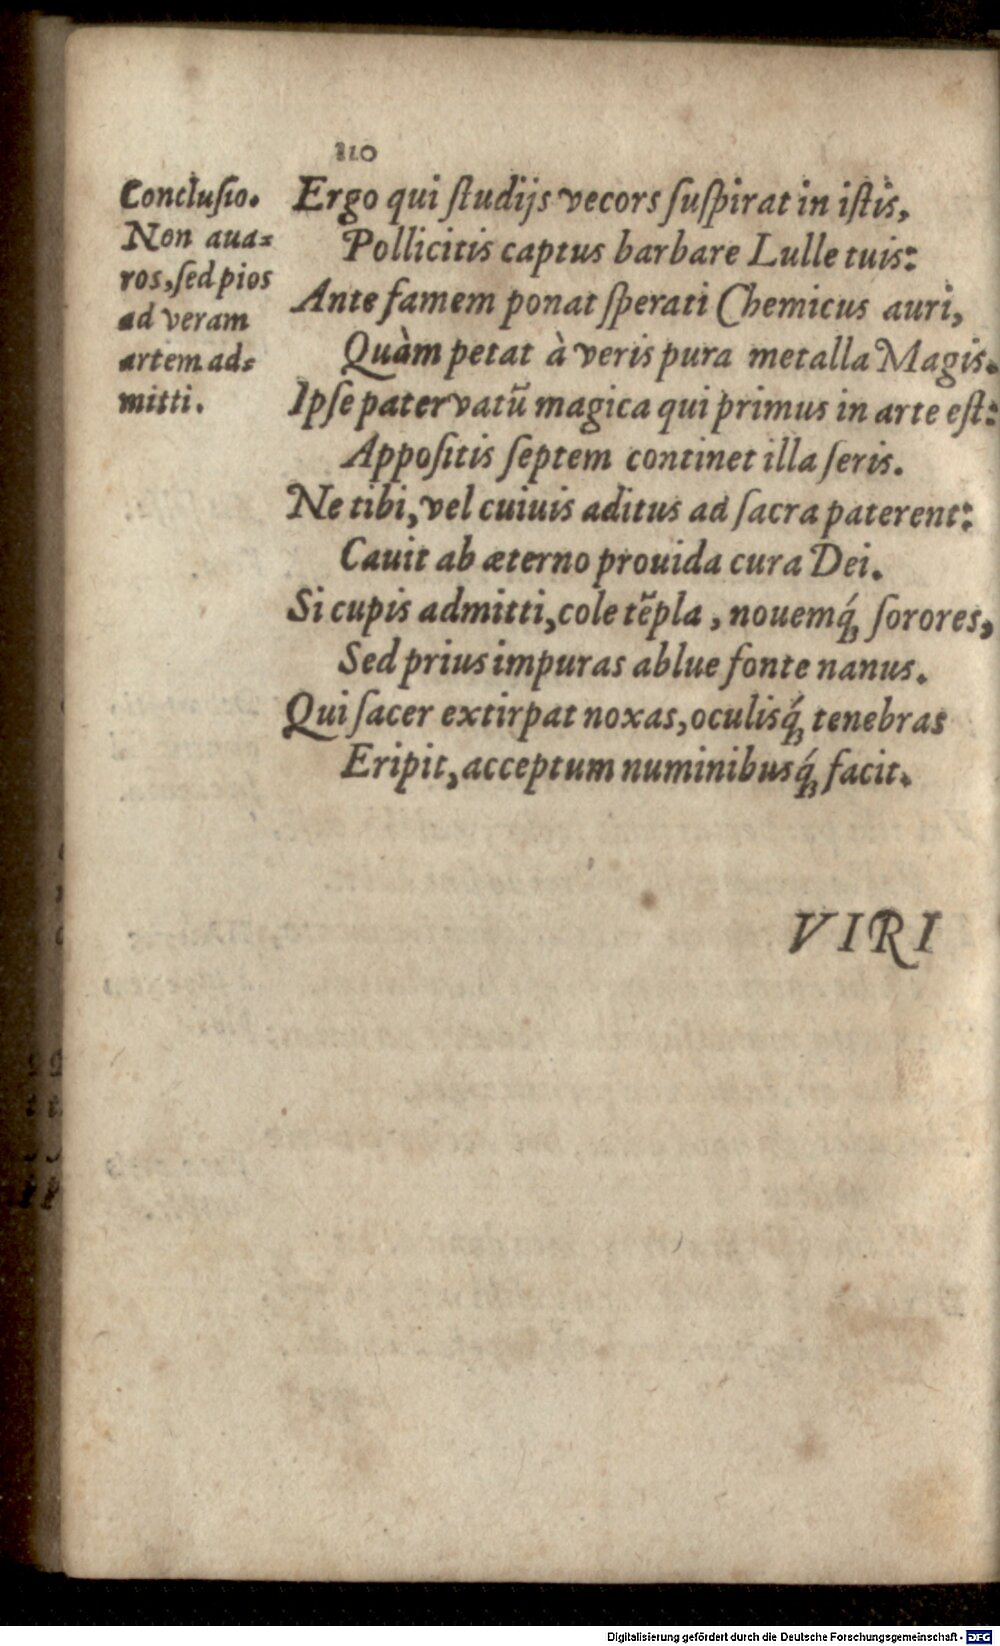 810
Conclusio.
Non aua=
ros, sed pios
ad veram
artem ad=
mitti.
Ergo qui ſtudijs vecors ſuſpirat in iſtis,
Pollicitis captus barbare Lulle tuis:
Ante famem ponat ſperati Chemicus auri,
Quàm petat à veris pura metalla Magis.
Ipſe pater vatũ magica qui primus in arte eſt:
Appoſitis ſeptem continet illa ſeris.
Ne tibi, vel cuiuis aditus ad ſacra paterent:
Cauit ab æterno prouida cura Dei.
Si cupis admitti, cole tẽpla, nouemq́; ſorores,
Sed prius impuras ablue fonte nanus.
Qui ſacer extirpat noxas, oculisq́; tenebras
Eripit, acceptum numinibusq́; facit.
VIRI
Digitalisierung gefördert durch die Deutsche Forschungsgemeinschaft - DFG